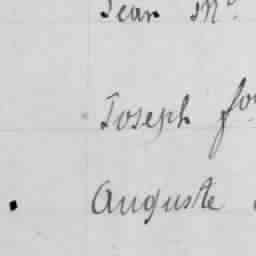 Jean M
Joseph fo
Auguste